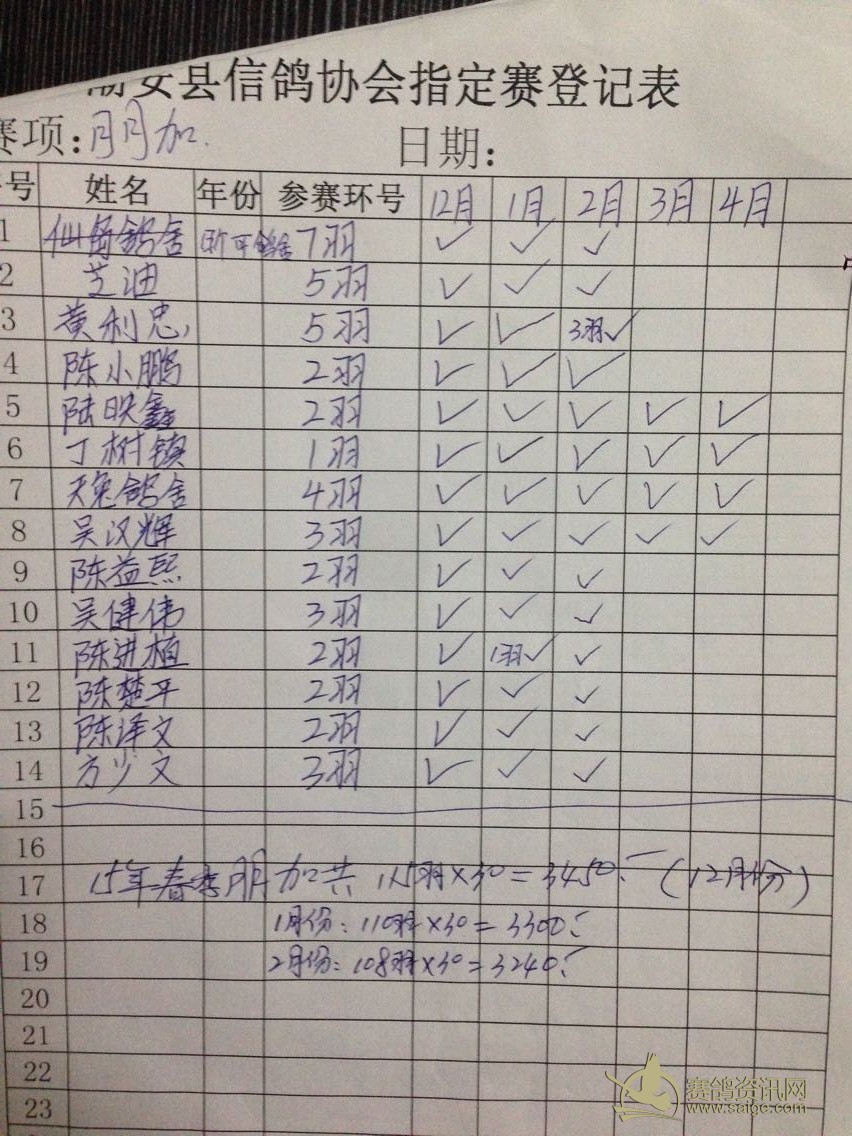 潮安县信鸽协会指定赛登记表
赛项:月月加. 日期:
号 姓名 年份 参赛环号 12月 1月 2月 3月 4月
1 鸽舍 7羽 ✓ ✓ ✓
2 芝迪 5羽 ✓ ✓ ✓
3 黄利忠 5羽 ✓ ✓ 3羽✓
4 陈小鹏 2羽 ✓ ✓ ✓
5 陆映鑫 2羽 ✓ ✓ ✓ ✓ ✓
6 丁树镇 1羽 ✓ ✓ ✓ ✓ ✓
7 天兔鸽舍 4羽 ✓ ✓ ✓ ✓ ✓
8 吴汉辉 3羽 ✓ ✓ ✓ ✓ ✓
9 陈益熙 2羽 ✓ ✓ ✓
10 吴健伟 3羽 ✓ ✓ ✓
11 陈进植 2羽 ✓ 1羽✓ ✓
12 陈楚平 2羽 ✓ ✓ ✓
13 陈泽文 2羽 ✓ ✓ ✓
14 方少文 3羽 ✓ ✓ ✓
15
16
17 15年春季月月加共 115羽×30=3450. (12月份)
18 1月份:110羽×30=3300
19 2月份:108羽×30=3240
20
21
22
23
赛鸽资讯网
www.saige.com